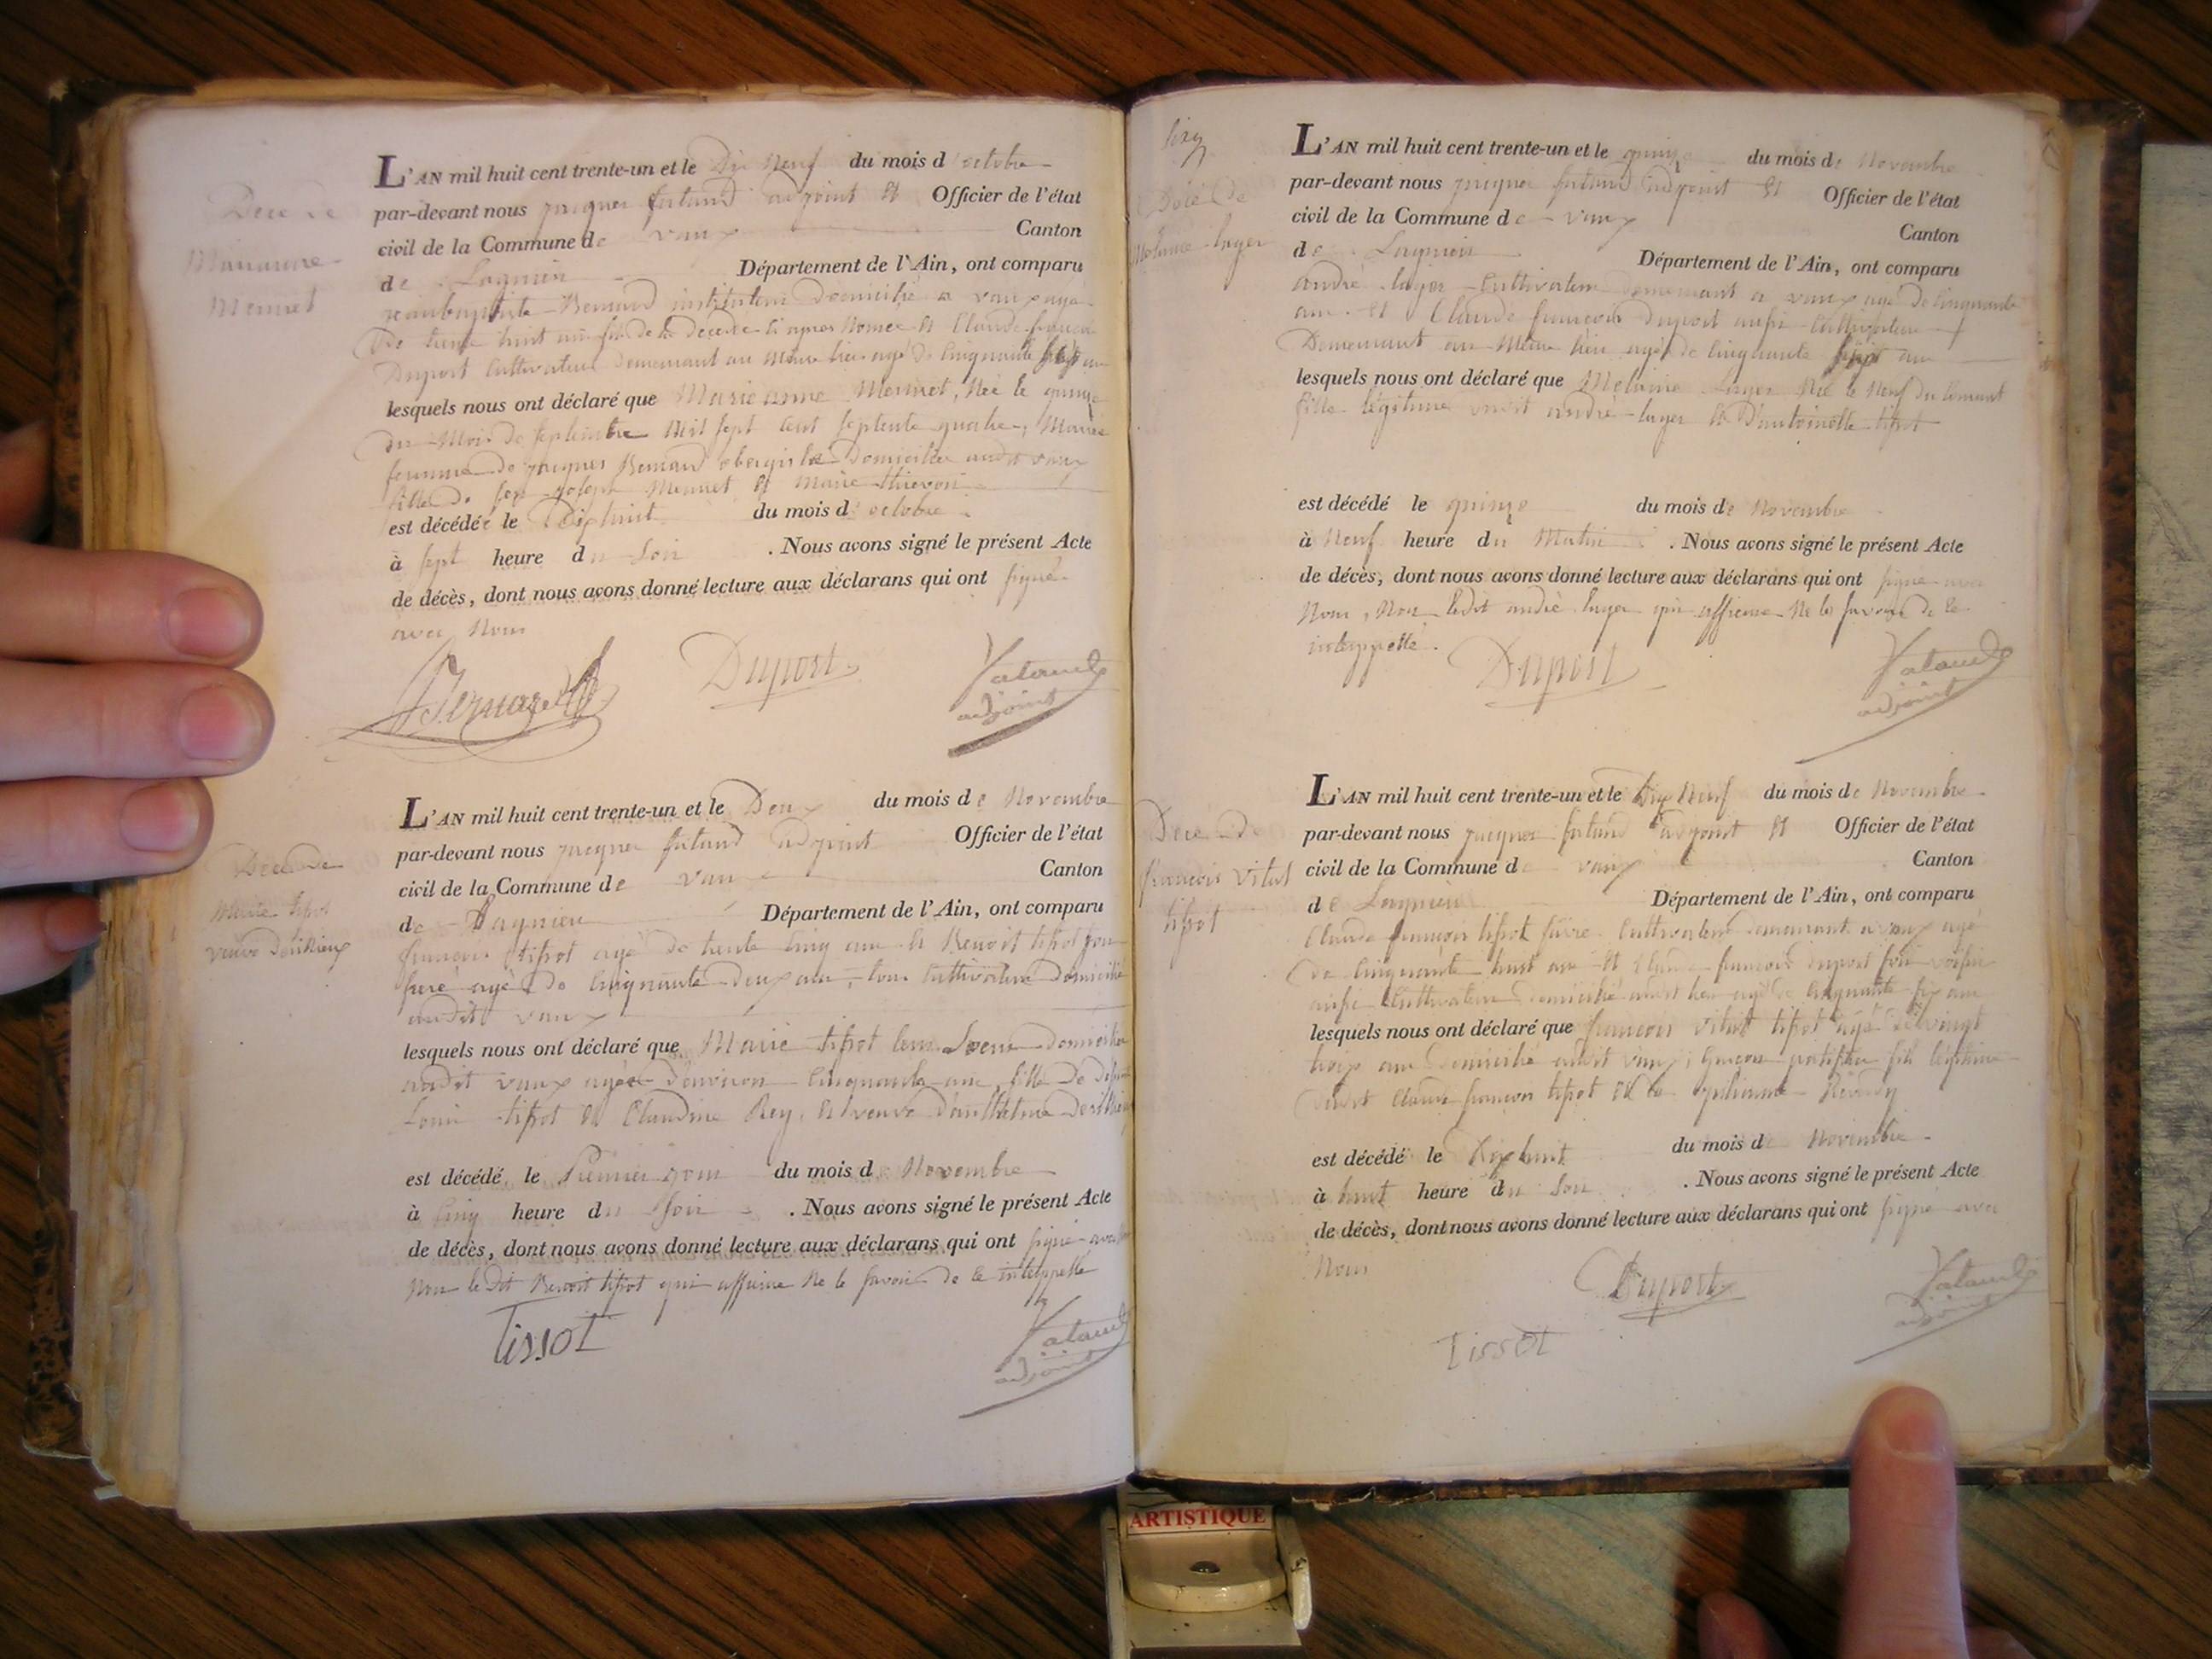 Marianne
Mermet
L'AN mil huit cent trente-un et le Dix Neuf du mois d'octobre
par-devant nous jacques adjoint Officier de l'état
civil de la Commune de vaux Canton
de Lagnieu Département de l'Ain, ont comparu
jeanbaptiste Bernard instituteur domicilié a vaux agé
De trente huit ans fils de la
Duport Cultivateur demeurant au même lieu agé de Cinquante
lesquels nous ont déclaré que Marieanne Mermet, Née le quinze
du Mois de septembre Mil sept Cent septente quatre, Mariée
femme de jacques Bernard Domiciliée audit vaux
fille de feu joseph Mermet et Marie thievon
est décédée le Dixhuit du mois d octobre
à sept heure du Soir . Nous avons signé le présent Acte
de décès, dont nous avons donné lecture aux déclarans qui ont signé
avec Nous
Bernard Duport
adjoint
Décès de
Marie tissot
L'AN mil huit cent trente-un et le Deux du mois de Novembre
par-devant nous jacques adjoint Officier de l'état
civil de la Commune de vaux Canton
de Lagnieu Département de l'Ain, ont comparu
françois tissot agé de trente Cinq ans et Benoit tissot son
frere agé de Cinquante Deux ans, tous Cultivateurs domiciliés
audit vaux
lesquels nous ont déclaré que Marie tissot leur Soeur domiciliée
audit vaux agée d'environ Cinquante ans, fille de
Louis tissot et Claudine Rey, et veuve d'anthelme
est décédé, le Premier jour du mois de Novembre
à Cinq heure du Soir . Nous avons signé le présent Acte
de décès, dont nous avons donné lecture aux déclarans qui ont signé avec
Nous le Dit Benoit tissot qui affirme Ne le savoir de ce interppellé
Tissot
adjoint
Melanie layer
L'AN mil huit cent trente-un et le quinze du mois de Novembre
par-devant nous jacques adjoint et Officier de l'état
civil de la Commune de vaux Canton
de Lagnieu Département de l'Ain, ont comparu
andré layer Cultivateur demeurant a vaux agé de Cinquante
ans et Claude françois Duport aussi Cultivateur
Demeurant au Même lieu agé de Cinquante ans
lesquels nous ont déclaré que Melanie Layer Née le Neuf du Courant
fille légitime dudit andré layer et D'antoinette tissot
est décédé le quinze du mois de Novembre
à Neuf heure du Matin . Nous avons signé le présent Acte
de décès, dont nous avons donné lecture aux déclarans qui ont signé avec
Nous, Non ledit andré layer qui affirme Ne le savoir de ce
interppellé.
Duport
adjoint
Décès de
françois vital
tissot
L'AN mil huit cent trente-un et le Dix Neuf du mois de Novembre
par-devant nous jacques adjoint et Officier de l'état
civil de la Commune de vaux Canton
de Lagnieu Département de l'Ain, ont comparu
Claude françois tissot Cultivateur demeurant a vaux agé
de Cinquante huit ans et Claude françois duport son voisin
aussi Cultivateur domicilié audit lieu agé de Cinquante six ans
lesquels nous ont déclaré que françois vital tissot agé de vingt
trois ans domicilié audit vaux, garçon fils légitime
dudit Claude françois tissot et de
est décédé le Dixhuit du mois de Novembre
à huit heure du Soir . Nous avons signé le présent Acte
de décès, dont nous avons donné lecture aux déclarans qui ont signé avec
Nous
Duport
Tissot adjoint
ARTISTIQUE